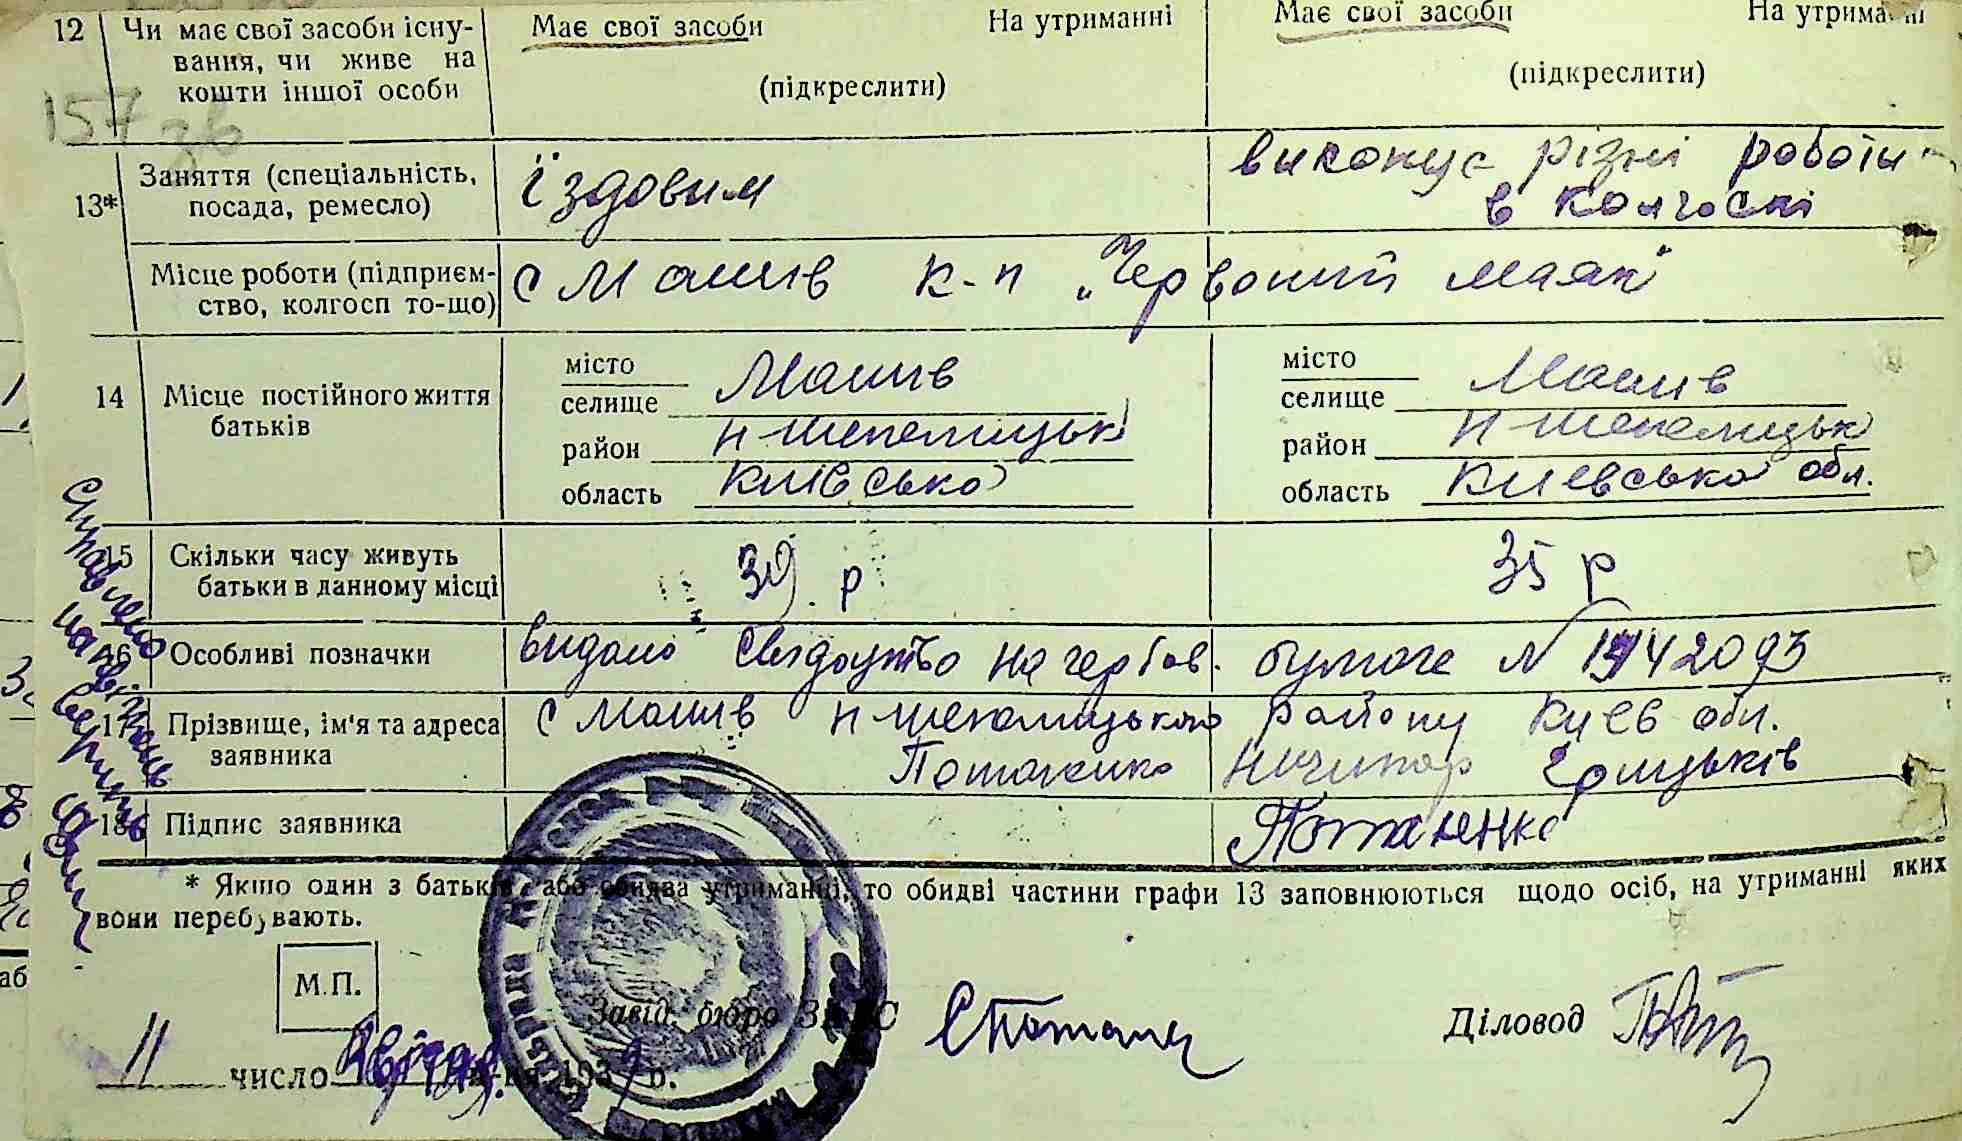 12 Чи має свої засоби існу-
вання, чи живе на
кошти іншої особи
Має свої засоби На утриманні
(підкреслити)
Має свої засоби На утриманні
(підкреслити)
157 зв
13* Заняття (спеціальність,
посада, ремесло)
їздовим
виконує різні роботи
в колгоспі
Місце роботи (підприєм-
ство, колгосп то-що)
с Машів к-п „Червоний маяк"
14 Місце постійного життя
батьків
місто
селище Машів
район Н-Шепелицьк
область Київсько
місто
селище Машів
район Н-Шепелицьк
область Киевсько обл.
15 Скільки часу живуть
батьки в данному місці
39 р
35 р
16 Особливі позначки
видано свидоутво на гербов. бумаге N 1942093
17 Прізвище, ім'я та адреса
заявника
с Машів Н-Шепелицького району Киев обл.
Потапенко Ничипор Грицьків
18 Підпис заявника
Потапенко
* Якшо один з батьків, або обидва утриманні, то обидві частини графи 13 заповнюються щодо осіб, на утриманні яких
вони перебувають.
М.П.
Завід. бюро ЗАГС
Діловод
11 число квітня 1939 р.